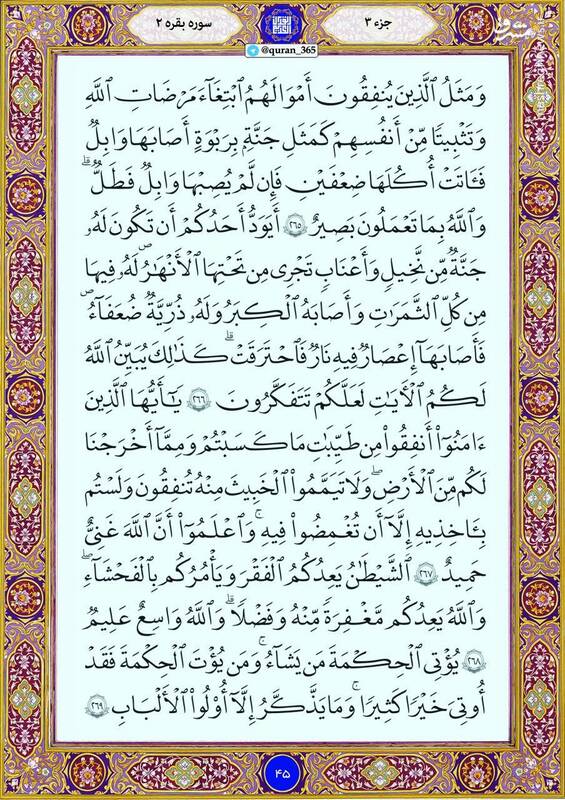 سوره بقره ۲
جزء ۳
مشرق
@quran_365
وَمَثَلُ ٱلَّذِينَ يُنفِقُونَ أَمْوَٰلَهُمُ ٱبْتِغَآءَ مَرْضَاتِ ٱللَّهِ
وَتَثْبِيتًا مِّنْ أَنفُسِهِمْ كَمَثَلِ جَنَّةٍۭ بِرَبْوَةٍ أَصَابَهَا وَابِلٌ
فَـَٔاتَتْ أُكُلَهَا ضِعْفَيْنِ فَإِن لَّمْ يُصِبْهَا وَابِلٌ فَطَلٌّ ۗ
وَٱللَّهُ بِمَا تَعْمَلُونَ بَصِيرٌ ۝٢٦٥ أَيَوَدُّ أَحَدُكُمْ أَن تَكُونَ لَهُۥ
جَنَّةٌ مِّن نَّخِيلٍ وَأَعْنَابٍ تَجْرِى مِن تَحْتِهَا ٱلْأَنْهَٰرُ لَهُۥ فِيهَا
مِن كُلِّ ٱلثَّمَرَٰتِ وَأَصَابَهُ ٱلْكِبَرُ وَلَهُۥ ذُرِّيَّةٌ ضُعَفَآءُ
فَأَصَابَهَآ إِعْصَارٌ فِيهِ نَارٌ فَٱحْتَرَقَتْ ۗ كَذَٰلِكَ يُبَيِّنُ ٱللَّهُ
لَكُمُ ٱلْـَٔايَٰتِ لَعَلَّكُمْ تَتَفَكَّرُونَ ۝٢٦٦ يَٰٓأَيُّهَا ٱلَّذِينَ
ءَامَنُوٓا۟ أَنفِقُوا۟ مِن طَيِّبَٰتِ مَا كَسَبْتُمْ وَمِمَّآ أَخْرَجْنَا
لَكُم مِّنَ ٱلْأَرْضِ ۖ وَلَا تَيَمَّمُوا۟ ٱلْخَبِيثَ مِنْهُ تُنفِقُونَ وَلَسْتُم
بِـَٔاخِذِيهِ إِلَّآ أَن تُغْمِضُوا۟ فِيهِ ۚ وَٱعْلَمُوٓا۟ أَنَّ ٱللَّهَ غَنِىٌّ
حَمِيدٌ ۝٢٦٧ ٱلشَّيْطَٰنُ يَعِدُكُمُ ٱلْفَقْرَ وَيَأْمُرُكُم بِٱلْفَحْشَآءِ ۖ
وَٱللَّهُ يَعِدُكُم مَّغْفِرَةً مِّنْهُ وَفَضْلًا ۗ وَٱللَّهُ وَٰسِعٌ عَلِيمٌ
۝٢٦٨ يُؤْتِى ٱلْحِكْمَةَ مَن يَشَآءُ ۚ وَمَن يُؤْتَ ٱلْحِكْمَةَ فَقَدْ
أُوتِىَ خَيْرًا كَثِيرًا ۗ وَمَا يَذَّكَّرُ إِلَّآ أُو۟لُوا۟ ٱلْأَلْبَٰبِ ۝٢٦٩
۴۵